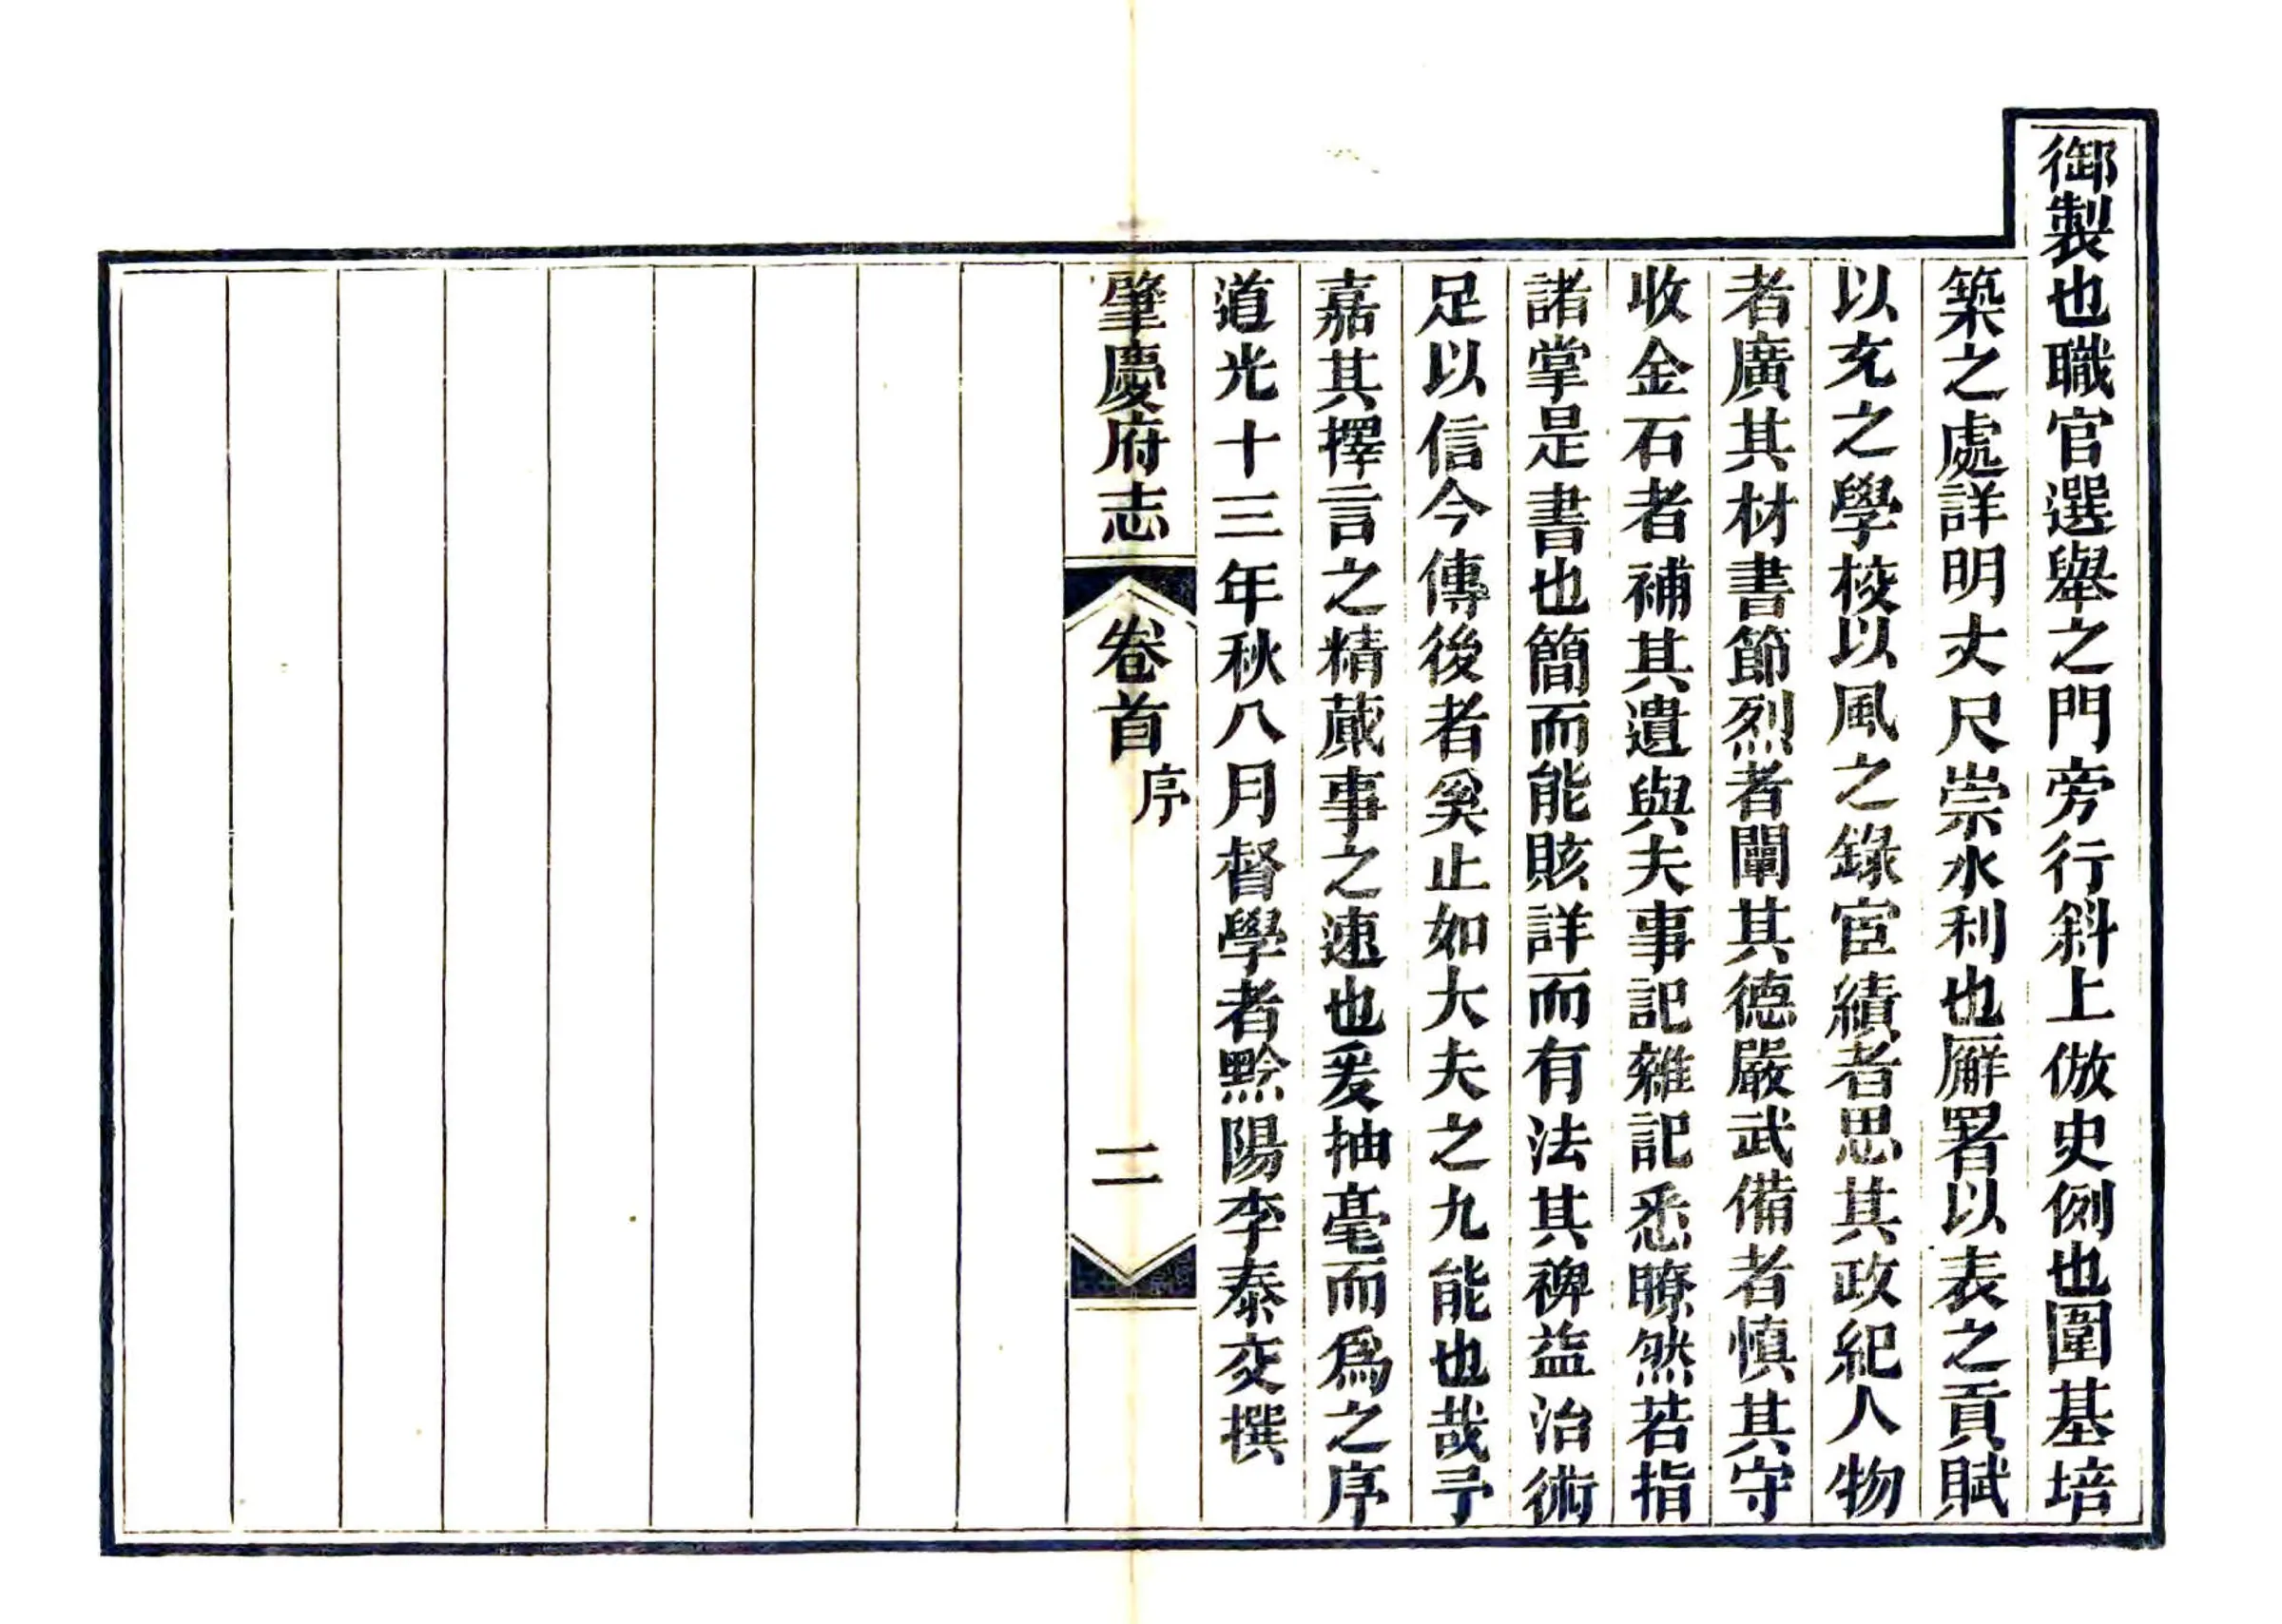 御製也職官選舉之門旁行斜上倣史例也圍基培
築之處詳明丈尺崇水利也廨署以表之貢賦
以充之學校以風之錄宦績者思其政紀人物
者廣其材書節烈者闡其德嚴武備者慎其守
收金石者補其遺與夫事記雜記悉瞭然若指
諸掌是書也簡而能賅詳而有法其裨益治術
足以信今傳後者奚止如大夫之九能也哉予
嘉其擇言之精蕆事之速也爰抽毫而爲之序
道光十三年秋八月督學者黔陽李泰交撰
肇慶府志
卷首
序
二